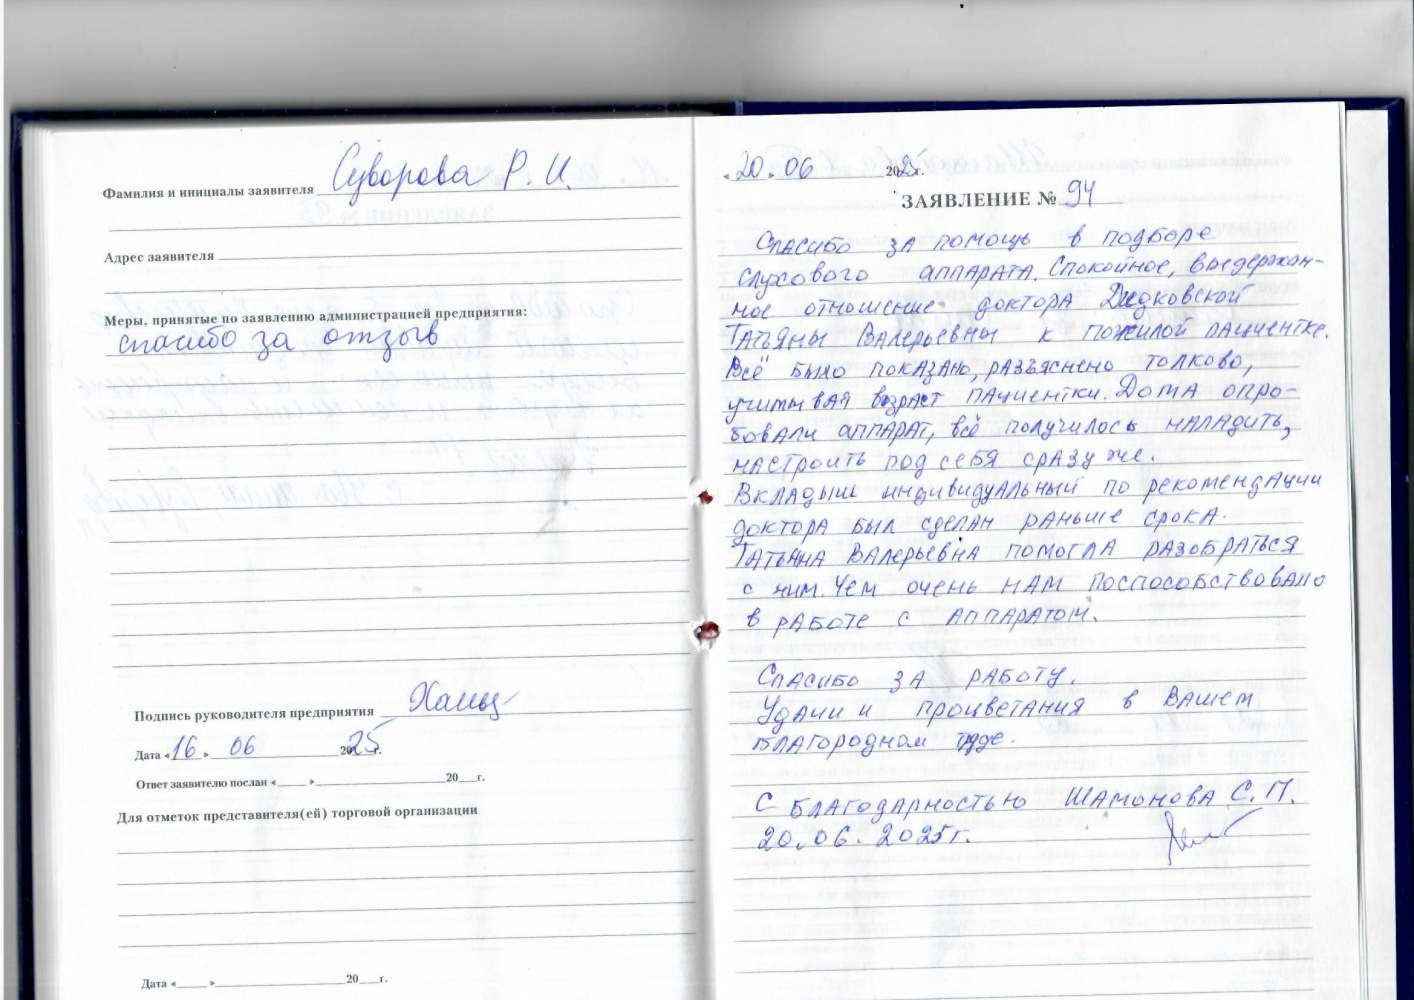 Фамилия и инициалы заявителя Суворова Р. И.
Адрес заявителя
Меры, принятые по заявлению администрацией предприятия:
спасибо за отзыв
Подпись руководителя предприятия
Дата «16» 06 2025г.
Ответ заявителю послан «___» ___ 20__г.
Для отметок представителя(ей) торговой организации
Дата «___» ___ 20__г.
«20» 06 2025г.
ЗАЯВЛЕНИЕ № 94
Спасибо за помощь в подборе
слухового аппарата. Спокойное, выдержан-
ное отношение доктора Дидковской
Татьяны Валерьевны к пожилой пациентке.
Всё было показано, разъяснено толково,
учитывая возраст пациентки. Дома опро-
бовали аппарат, всё получилось наладить,
настроить под себя сразу же.
Вкладыш индивидуальный по рекомендации
доктора был сделан раньше срока.
Татьяна Валерьевна помогла разобраться
с ним. Чем очень нам поспособствовало
в работе с аппаратом.
Спасибо за работу.
Удачи и процветания в Вашем
благородном
С благодарностью Шамонова С. П.
20.06.2025г.